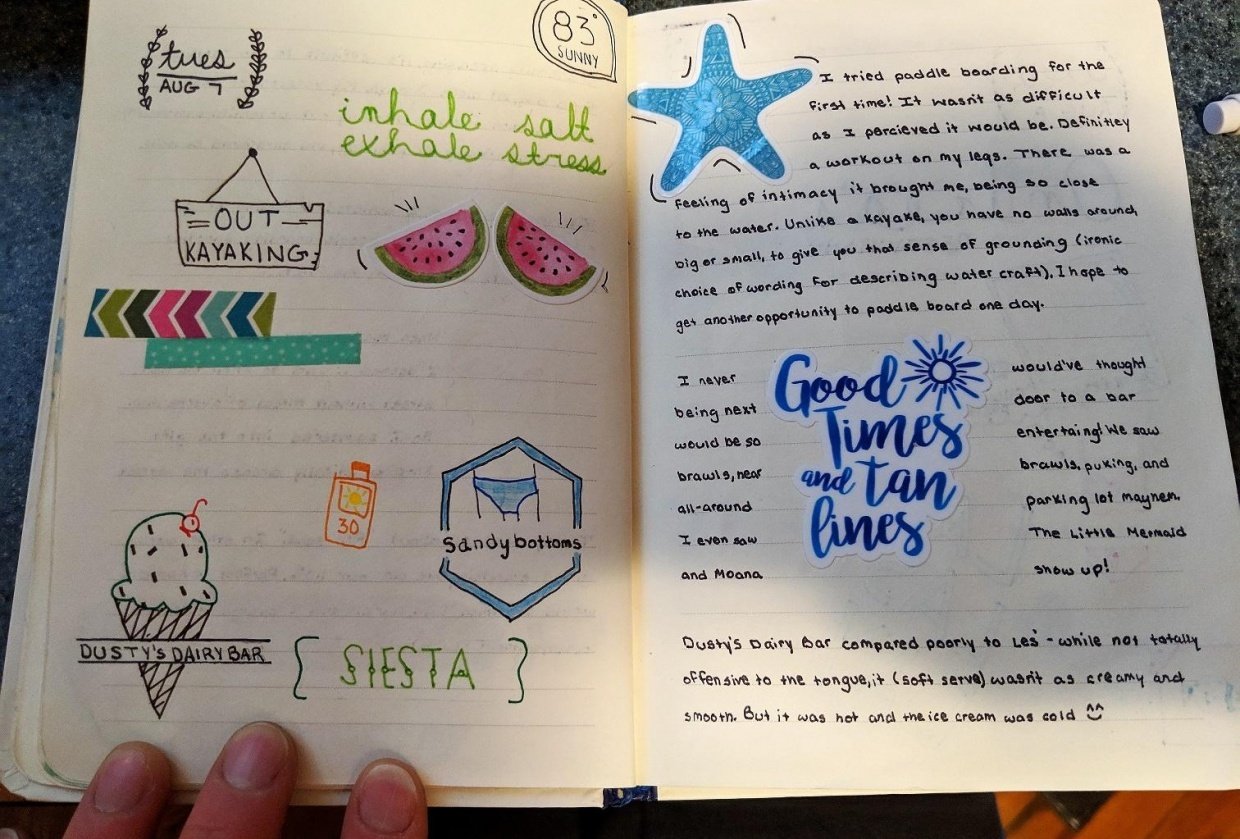 tues
AUG 7
83°
SUNNY
inhale salt
exhale stress
OUT
KAYAKING
30
Sandybottoms
DUSTY'S DAIRY BAR
SIESTA
I tried paddle boarding for the
first time! It wasn't as difficult
as I percieved it would be. Definitley
a workout on my legs. There was a
feeling of intimacy it brought me, being so close
to the water. Unlike a kayake, you have no walls around,
big or small, to give you that sense of grounding (ironic
choice of wording for describing water craft). I hope to
get another opportunity to paddle board one day.
I never would've thought
being next door to a bar
would be so entertaing! We saw
brawls, near brawls, puking, and
all-around parking lot mayhem.
I even saw The Little Mermaid
and Moana show up!
Good
Times
and tan
lines
Dusty's Dairy Bar compared poorly to Les' - while not totally
offensive to the tongue, it (soft serve) wasn't as creamy and
smooth. But it was hot and the ice cream was cold ^^